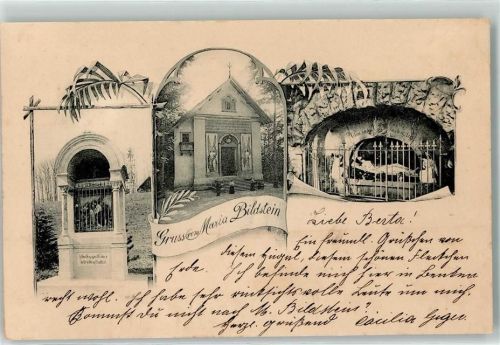 Gruss von Maria Bildstein
Liebe Berta!
Ein freundl. Grüßchen von
diesem Hügel, diesem schönen Fleckchen
Erde. Ich befinde mich hier in Benken
recht wohl. Ich habe sehr rücksichtsvolle Leute um mich.
Kommst Du nicht nach M. Bildstein?
Herzl. grüßend Cäcilia Geger.